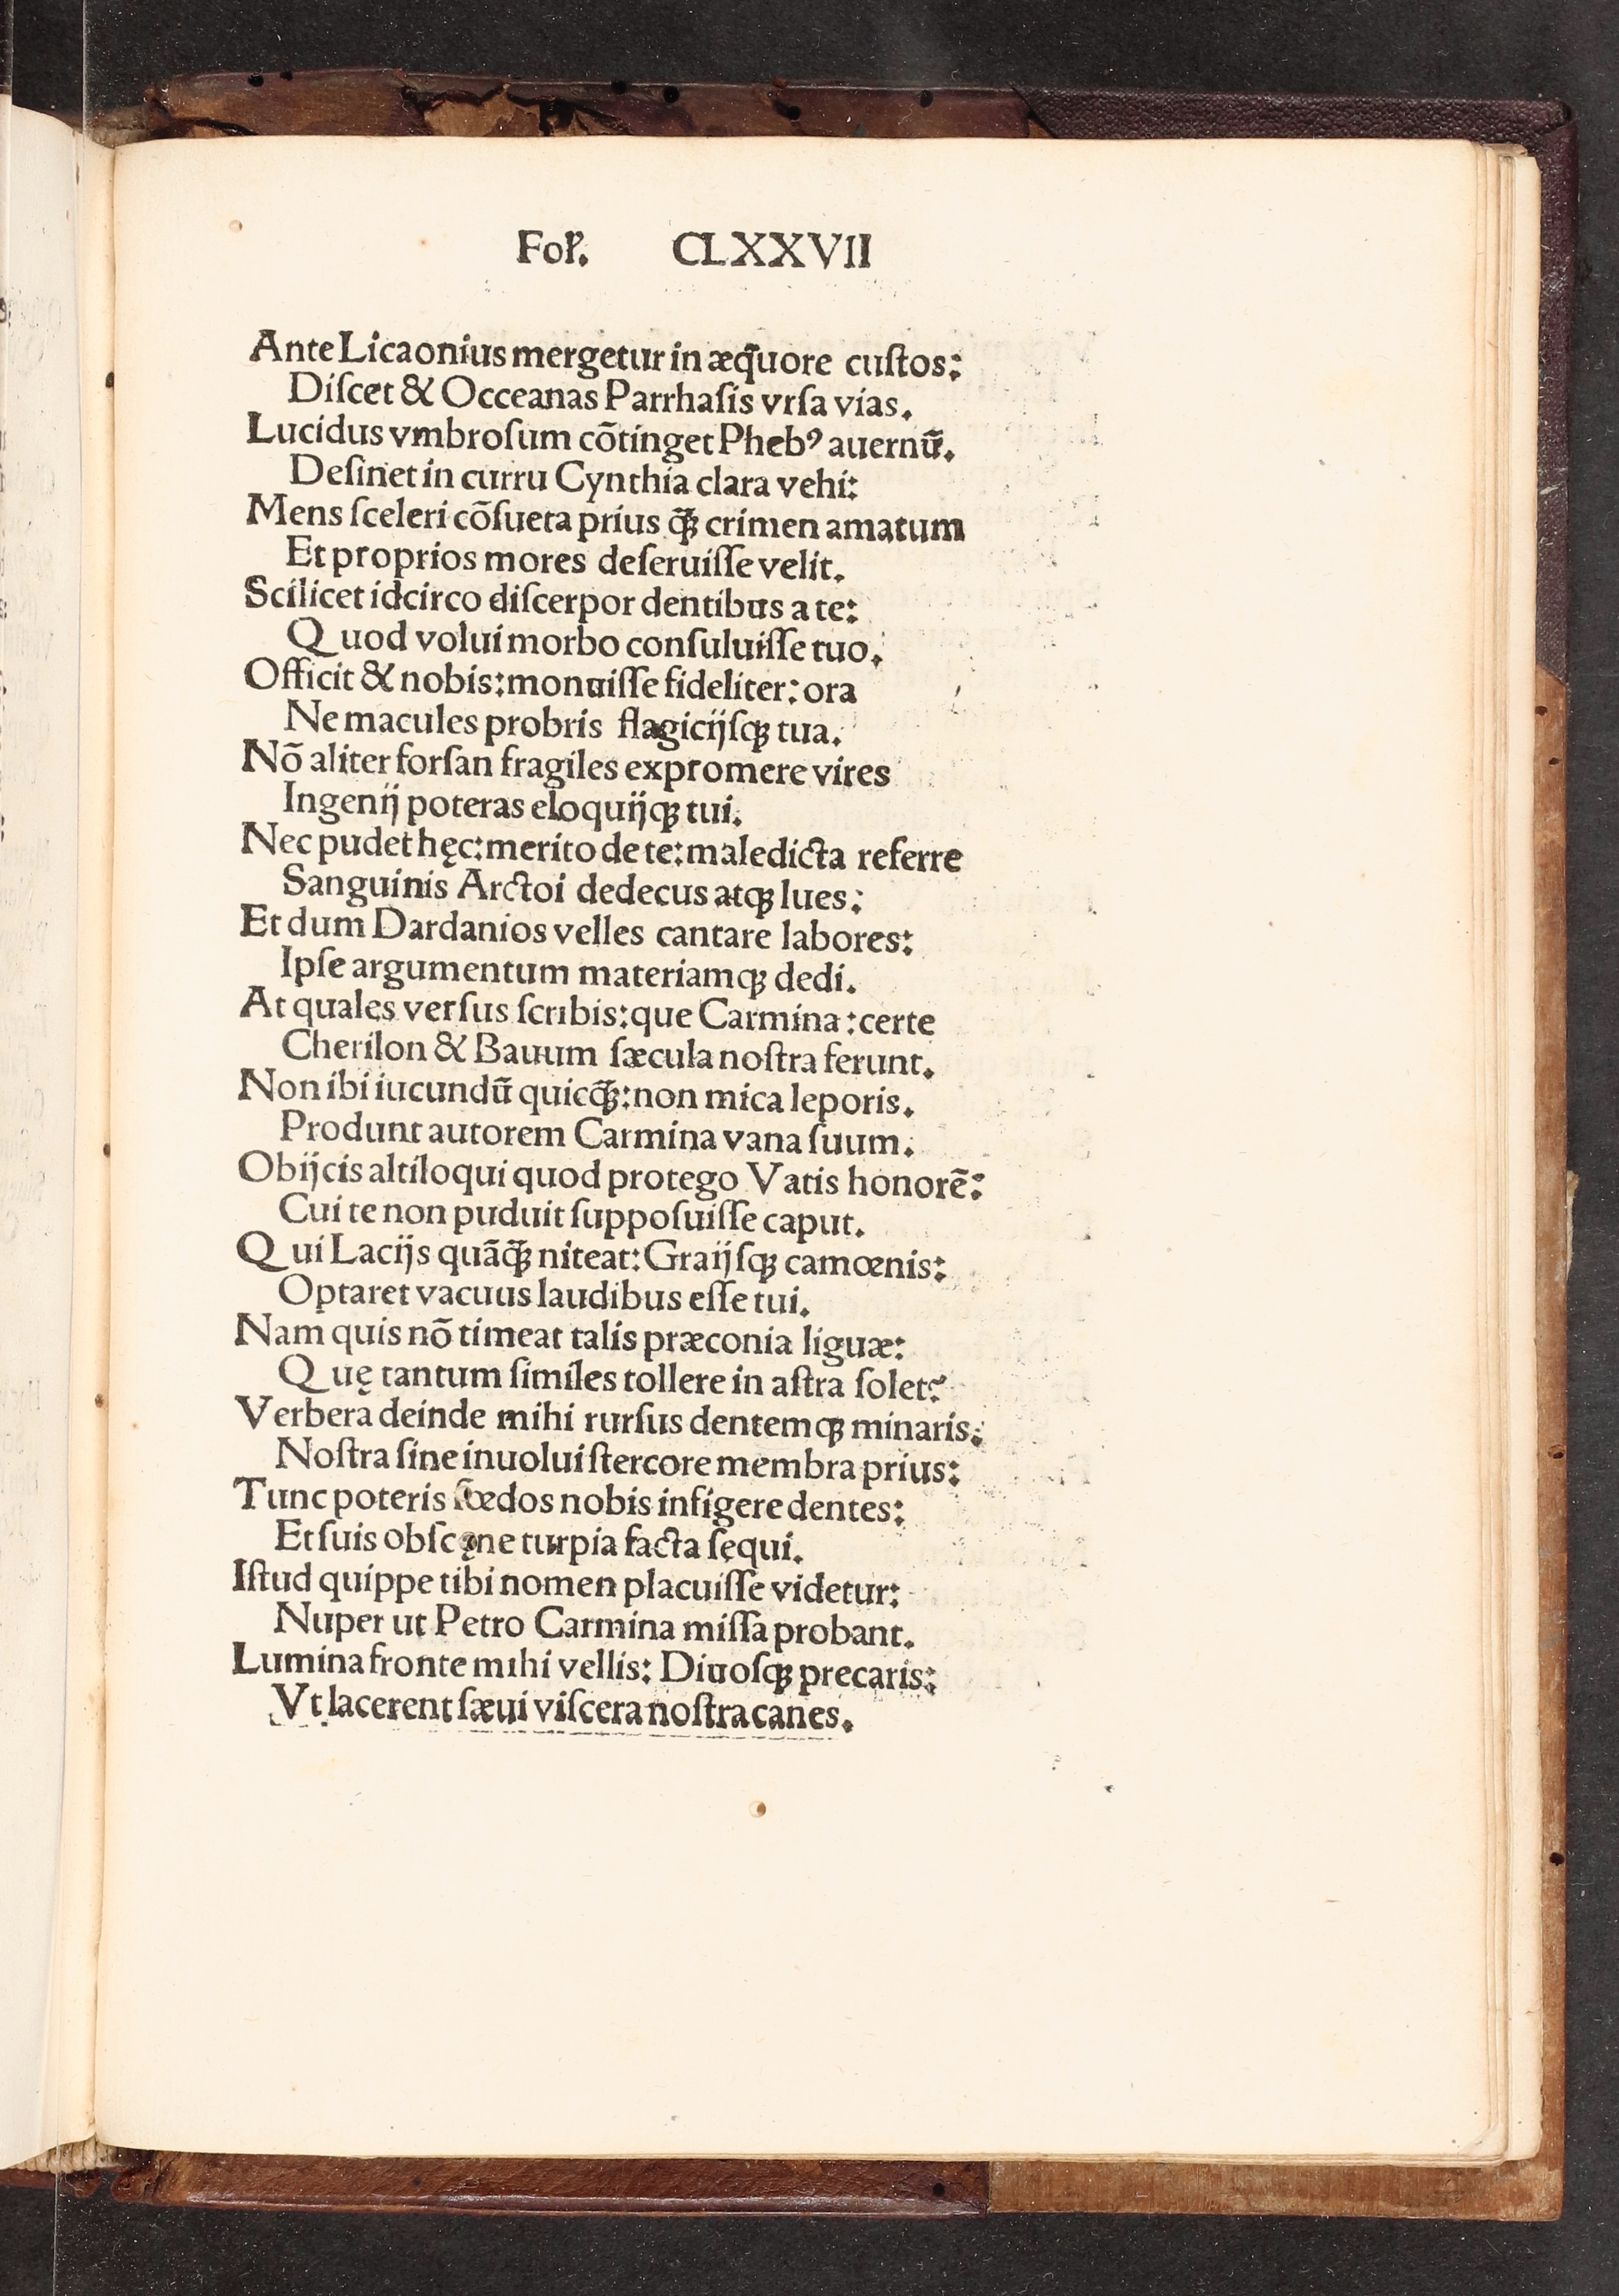 Fol. CLXXVII
Ante Licaonius mergetur in æq̃uore custos:
Diſcet & Occeanas Parrhaſis vrſa vias.
Lucidus vmbroſum cõtinget Phebꝰ auernũ.
Deſinet in curru Cynthia clara vehi:
Mens ſceleri cõſueta prius q̃ꝫ crimen amatum
Et proprios mores deſeruiſſe velit.
Scilicet idcirco diſcerpor dentibus a te:
Quod volui morbo conſuluiſſe tuo.
Officit & nobis: monuiſſe fideliter: ora
Ne macules probris flagicijſqꝫ tua.
Nõ aliter forſan fragiles expromere vires
Ingenij poteras eloquijqꝫ tui.
Nec pudet hęc: merito de te: maledicta referre
Sanguinis Arctoi dedecus atqꝫ lues:
Et dum Dardanios velles cantare labores:
Ipſe argumentum materiamqꝫ dedi.
At quales verſus ſcribis: que Carmina: certe
Cherilon & Bauum ſæcula noſtra ferunt.
Non ibi iucundũ quicq̃ꝫ: non mica leporis.
Produnt autorem Carmina vana ſuum.
Obijcis altiloqui quod protego Vatis honorẽ:
Cui te non puduit ſuppoſuiſſe caput.
Qui Lacijs quãq̃ꝫ niteat: Graijſqꝫ camœnis:
Optaret vacuus laudibus eſſe tui.
Nam quis nõ timeat talis præconia liguæ:
Quę tantum ſimiles tollere in aſtra ſolet?
Verbera deinde mihi rurſus dentemqꝫ minaris:
Noſtra ſine inuolui ſtercore membra prius:
Tunc poteris fœdos nobis infigere dentes:
Et ſuis obſcęne turpia facta ſequi.
Iſtud quippe tibi nomen placuiſſe videtur:
Nuper ut Petro Carmina miſſa probant.
Lumina fronte mihi vellis: Diuoſqꝫ precaris:
Vt lacerent ſæui viſcera noſtra canes.